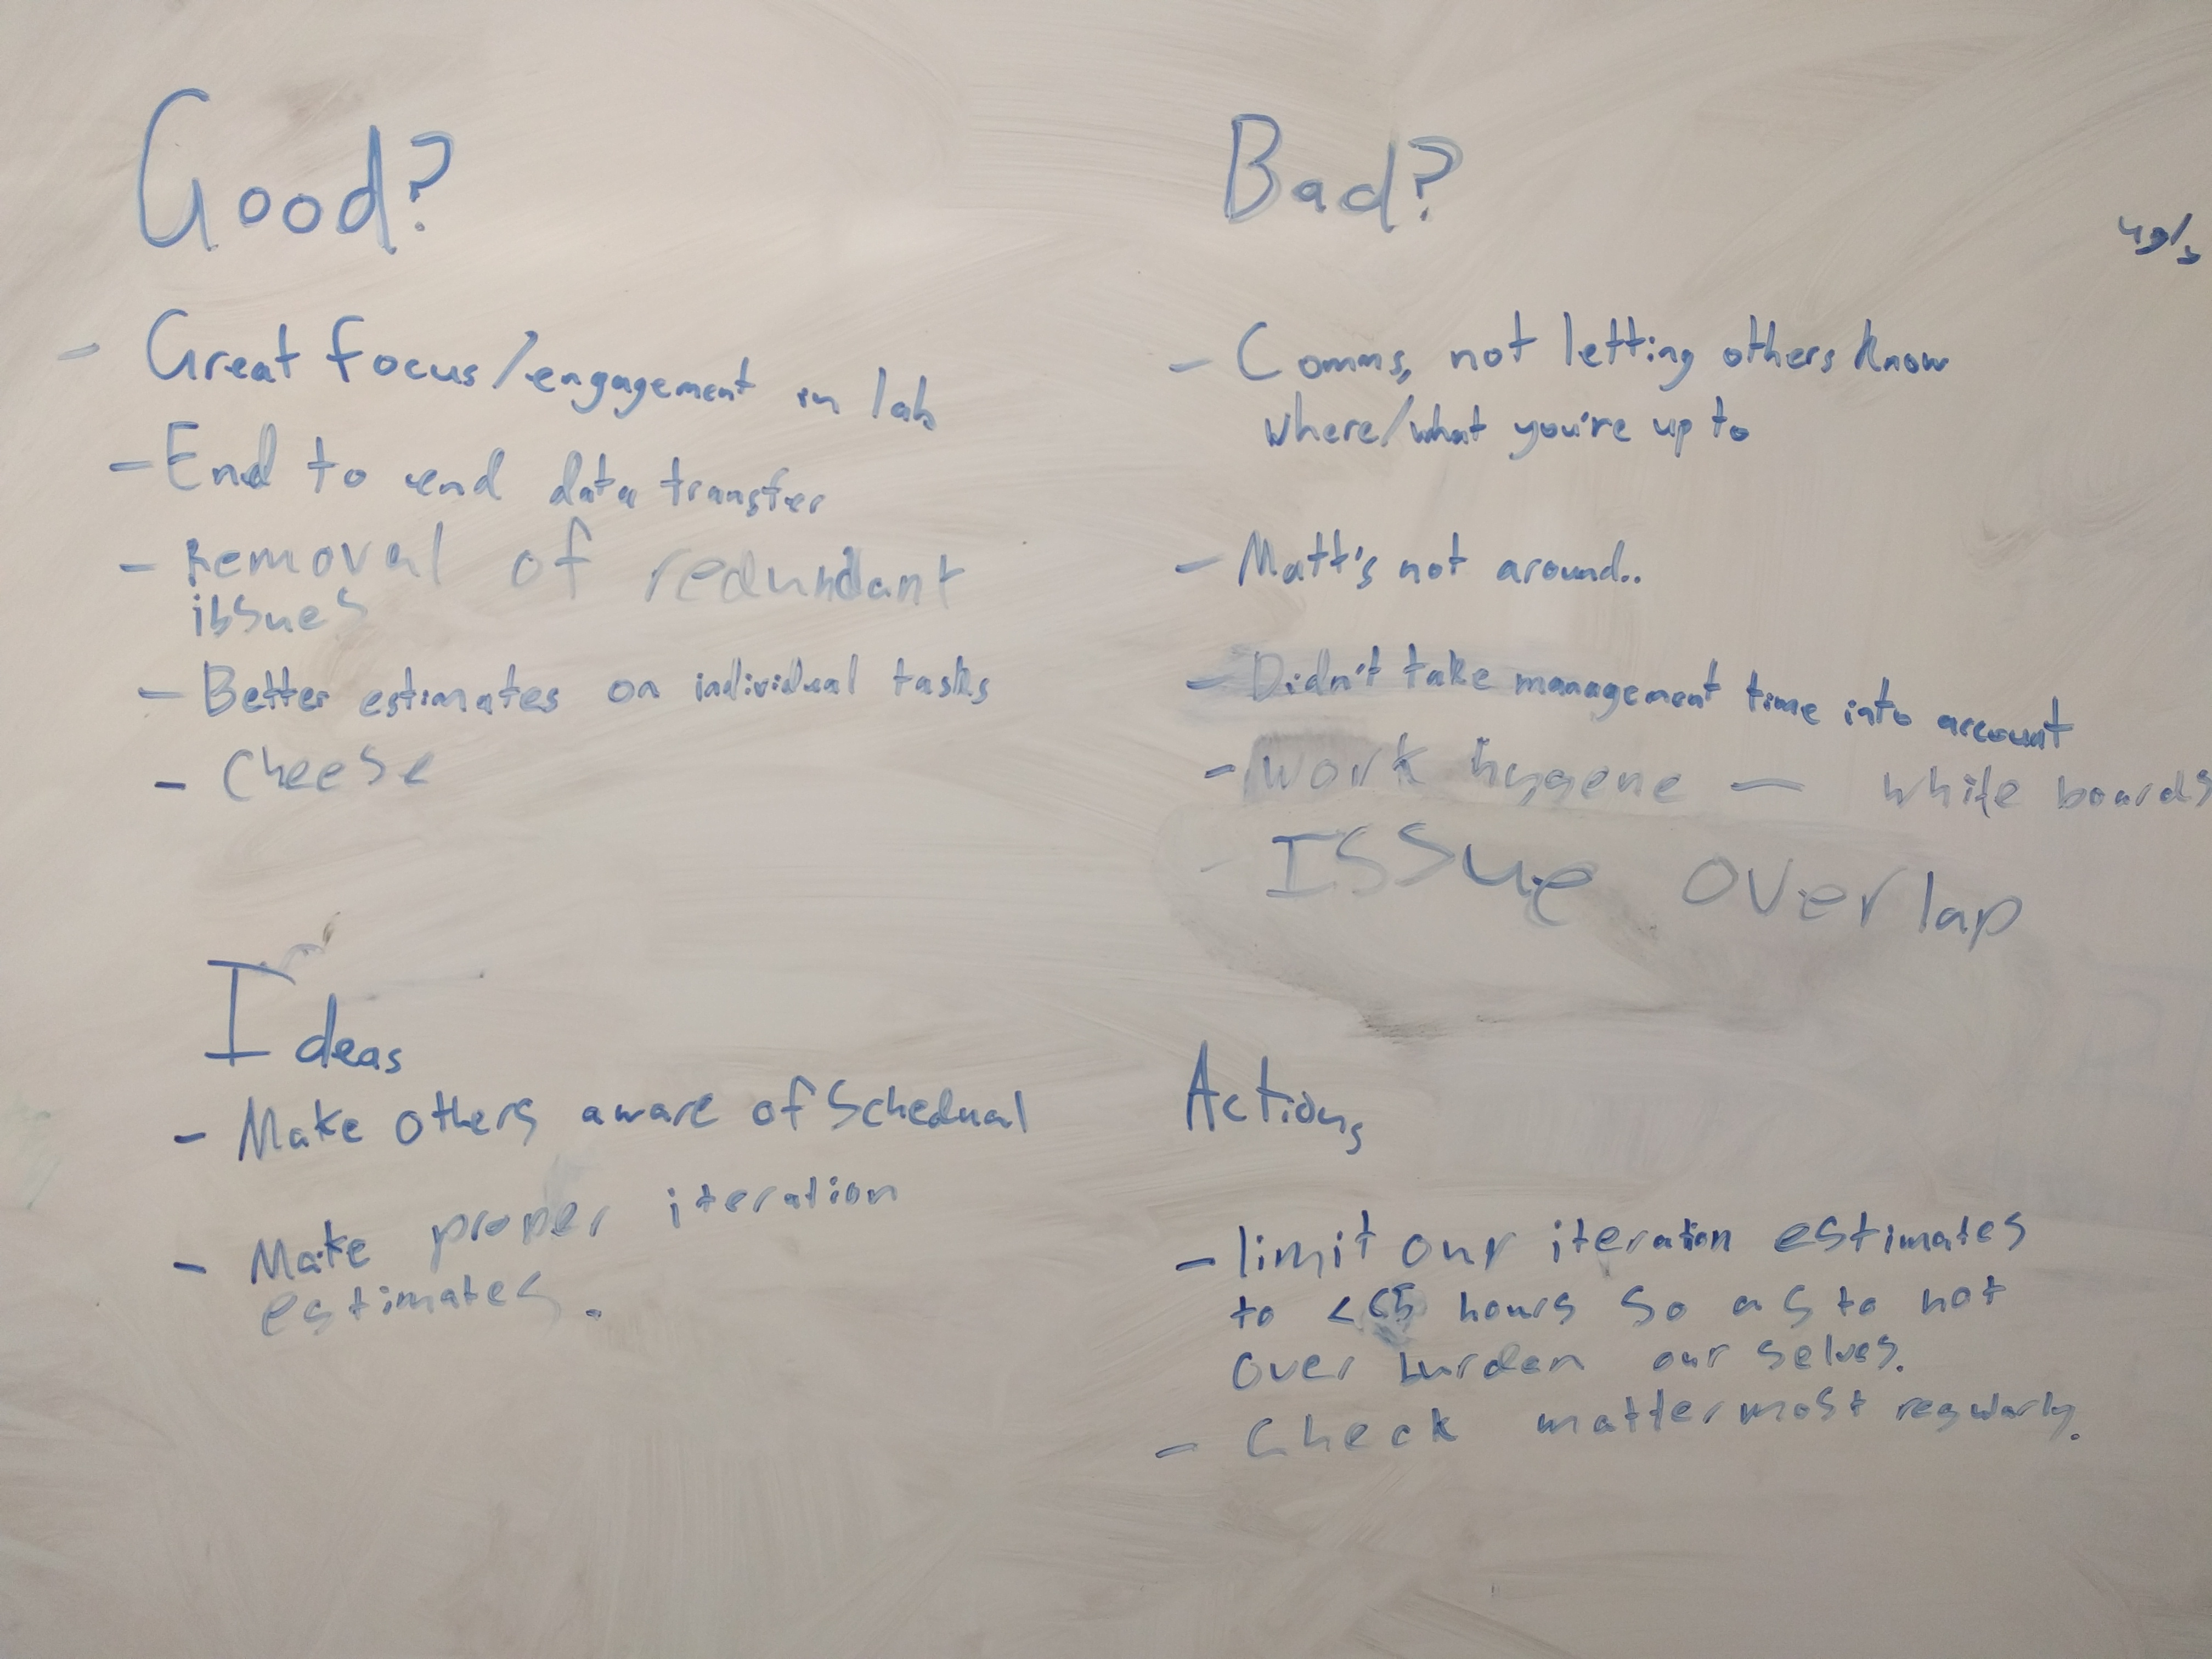 Good?
- Great focus/engagement in lab
- End to end data transfer
- Removal of redundant
issues
- Better estimates on individual tasks
- Cheese
Bad?
ugly
- Comms, not letting others know
where/what you're up to
- Matt's not around..
- Didn't take management time into account
- Work hygene - white boards
- Issue overlap
Ideas
- Make others aware of Schedual
- Make proper iteration
estimates.
Actions
- limit our iteration estimates
to < hours so as to not
over burden our selves.
- Check mattermost regularly.